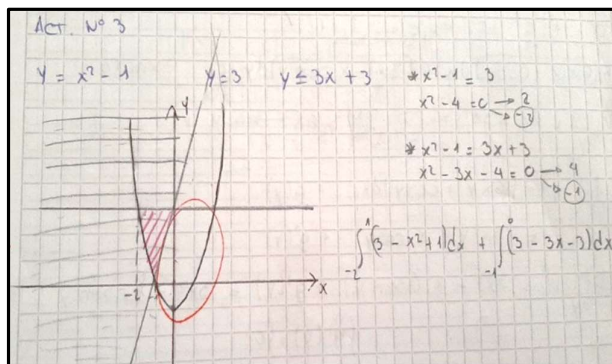 Act. Nº 3
y = x² - 1   y = 3   y ≤ 3x + 3
* x² - 1 = 3
x² - 4 = 0 → 2
→ -2
* x² - 1 = 3x + 3
x² - 3x - 4 = 0 → 4
→ -1
y
-2
x
∫₋₂¹ (3 - x² + 1) dx + ∫₋₁⁰ (3 - 3x - 3) dx